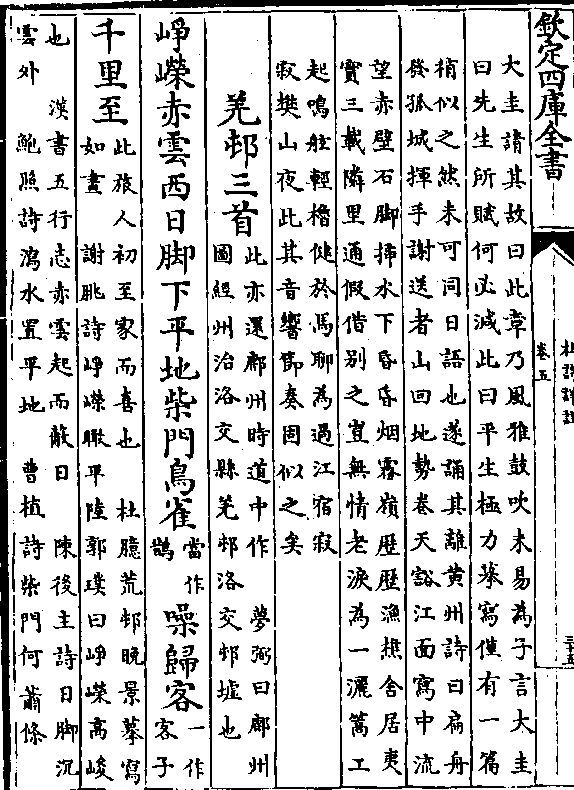 欽定四庫全書
杜詩詳註
卷五
三十五
大圭請其故曰此章乃風雅鼓吹未易為子言大圭
曰先生所賦何必減此曰平生極力摹寫僅有一篇
稍似之然未可同日語也遂誦其離黄州詩曰扁舟
發孤城揮手謝送者山回地勢卷天豁江面寫中流
望赤壁石脚揷水下昏昏烟霧嶺歴歴漁樵舍居夷
實三載隣里通假借别之豈無情老淚為一灑篙工
起鳴舷輕櫓健於馬聊為過江宿寂
寂樊山夜此其音響節奏固似之矣
羌邨三首 此亦還鄜州時道中作 夢弼曰鄜州
圖經州治洛交縣羌邨洛交邨墟也
崢嶸赤雲西日脚下平地柴門鳥雀 當作鵲 噪歸客 一作客子
千里至 此旅人初至家而喜也 杜臆荒邨晚景摹寫
如畫 謝朓詩崢嶸瞰平陸郭璞曰崢嶸高峻
也 漢書五行志赤雲起而蔽日 陳後主詩日脚沉
雲外 鮑照詩瀉水置平地 曹植詩柴門何蕭條